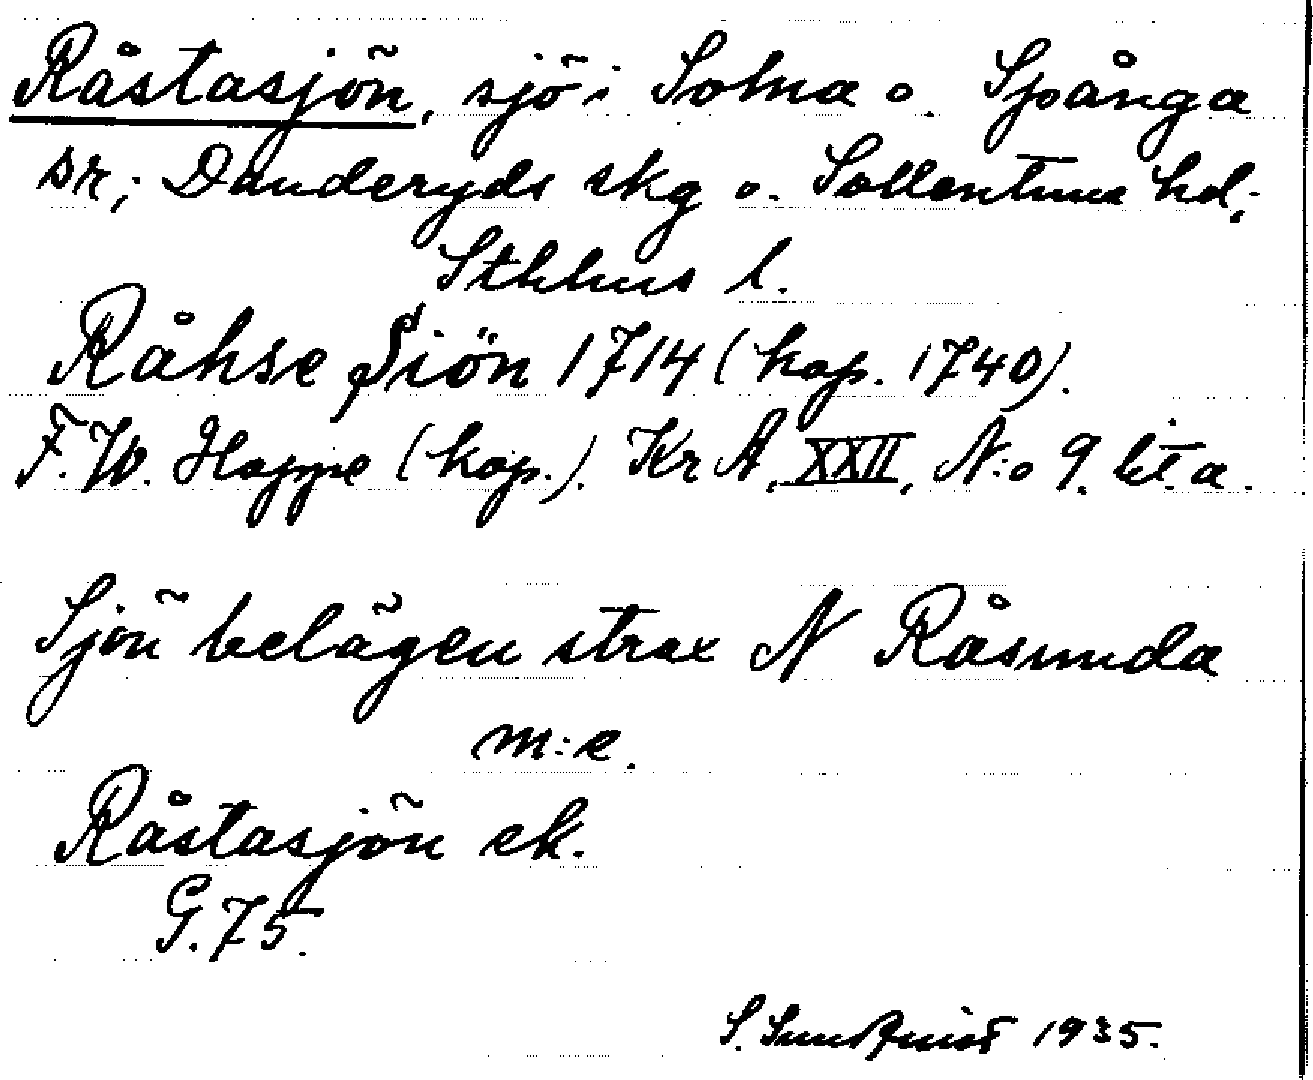 Råstasjön, sjö i Solna o. Spånga
sr; Danderyds skg o. Sollentuna hd,
Sthlms l.
Råhse Siön 1714 (kop. 1740).
F.W. Hoppe (kop.). Kr A, XXII, N:o 9. lit. a.
Sjön belägen strax N Råsunda
m:e.
Råstasjön ek.
G. 75.
S. Sundquist 1935.